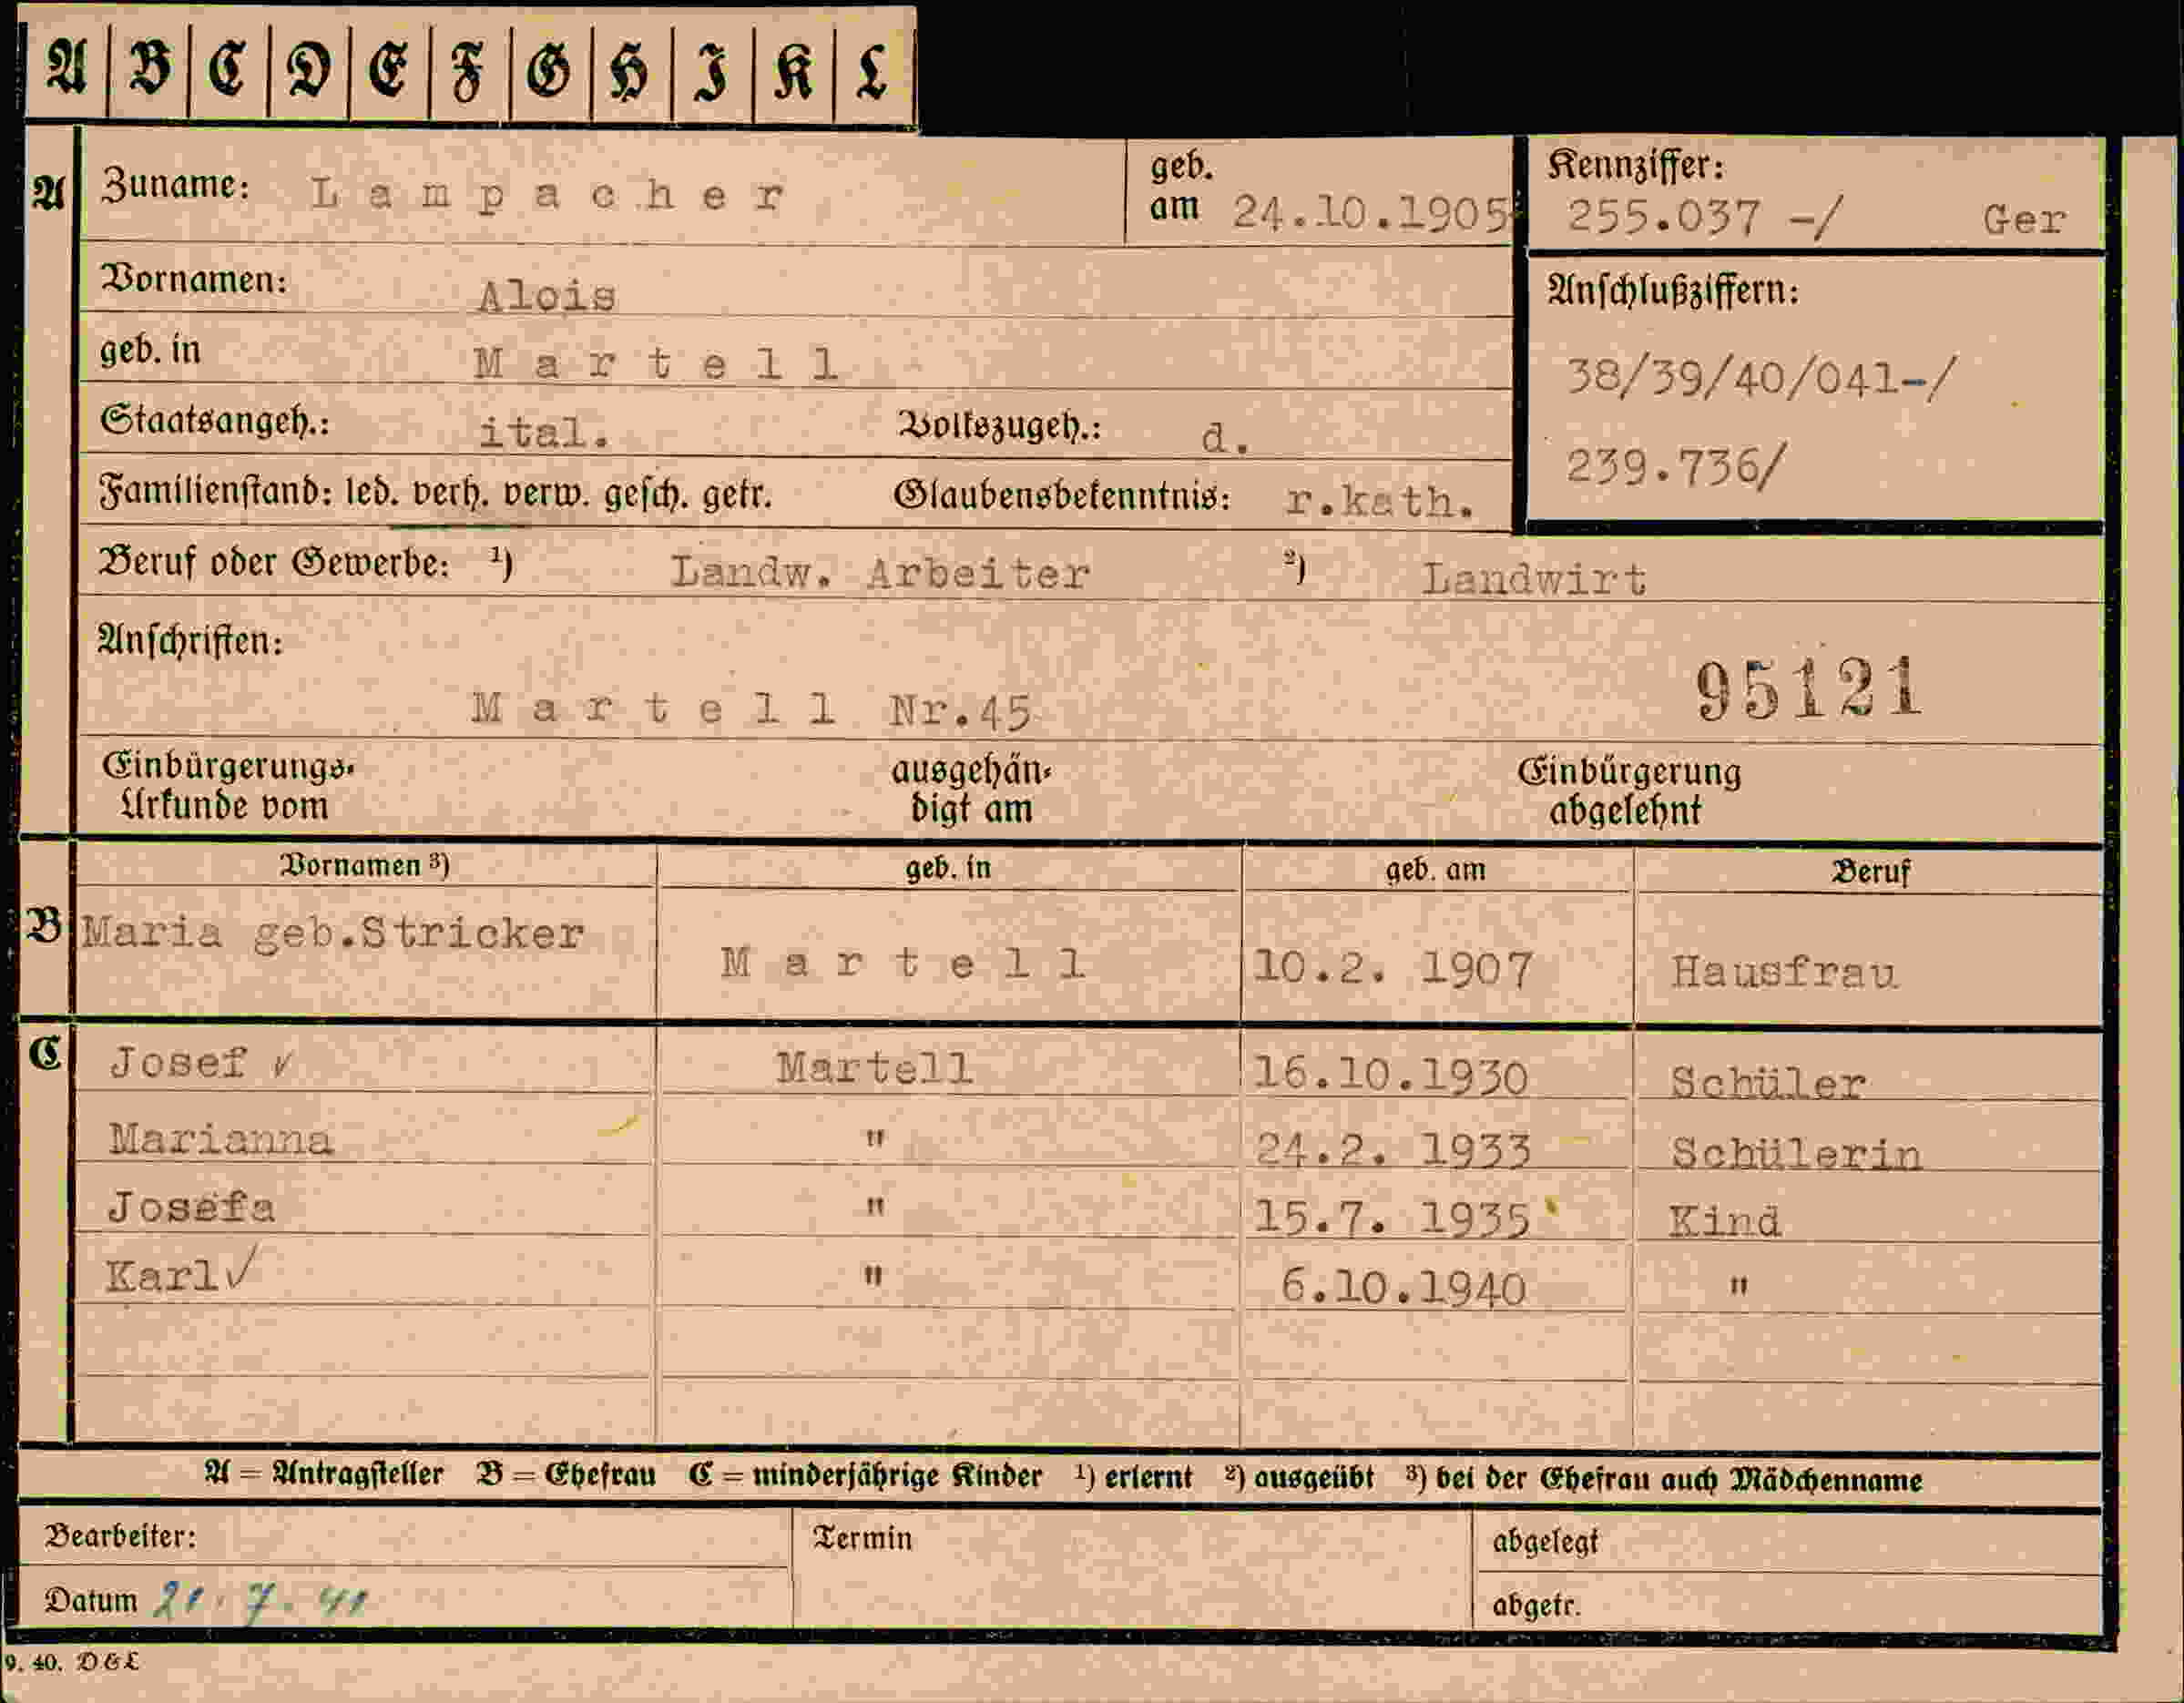 A B C D E F G H I K L
A Zuname: Lampacher geb. am 24.10.1905 Kennziffer: 255.037 -/ Ger
Vornamen: Alois Anschlußziffern:
geb. in Martell 38/39/40/041-/
Staatsangeh.: ital. Volkszugeh.: d. 239.736/
Familienstand: led. verh. verw. gesch. getr. Glaubensbekenntnis: r.kath.
Beruf oder Gewerbe: ¹) Landw. Arbeiter ²) Landwirt
Anschriften:
Martell Nr.45 95121
Einbürgerungs- ausgehän- Einbürgerung
Urkunde vom digt am abgelehnt
Vornamen ³) geb. in geb. am Beruf
B Maria geb.Stricker Martell 10.2. 1907 Hausfrau
C Josef ✓ Martell 16.10.1930 Schüler
Marianna " 24.2. 1933 Schülerin
Josefa " 15.7. 1935 Kind
Karl ✓ " 6.10.1940 "
A = Antragsteller B = Ehefrau C = minderjährige Kinder ¹) erlernt ²) ausgeübt ³) bei der Ehefrau auch Mädchenname
Bearbeiter: Termin abgelegt
Datum 21.7.41 abgetr.
9. 40. D&L